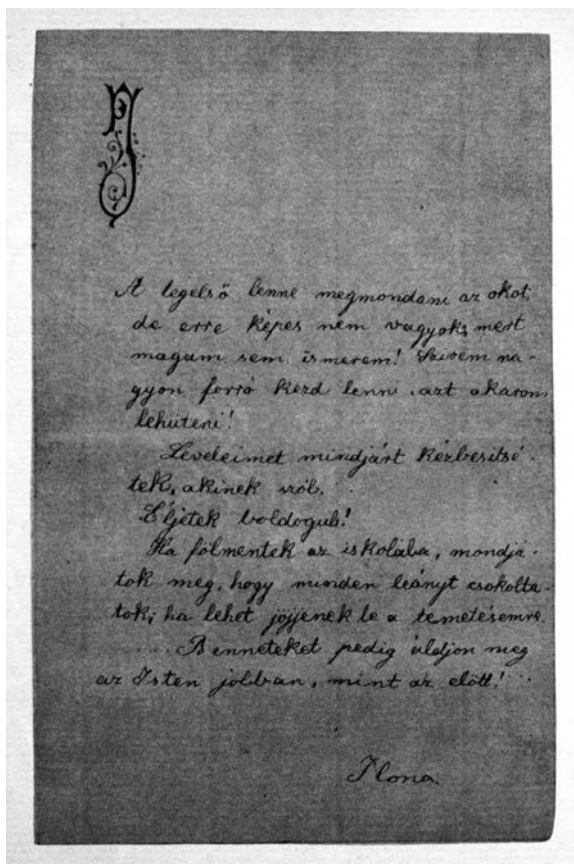 A legelső lenne megmondani az okot,
de erre képes nem vagyok, mert
magam sem ismerem! Szivem na-
gyon forró kezd lenni azt akarom
lehüteni!
Leveleimet mindjárt kézbesitsé-
tek, akinek szól.
Éljetek boldogul!
Ha fölmentek az iskolába, mondjá-
tok meg, hogy minden leányt csokolta-
tok; ha lehet jöjjenek le a temetésemre.
Benneteket pedig áldjon meg
az Isten jobban, mint az előtt!
Ilona.